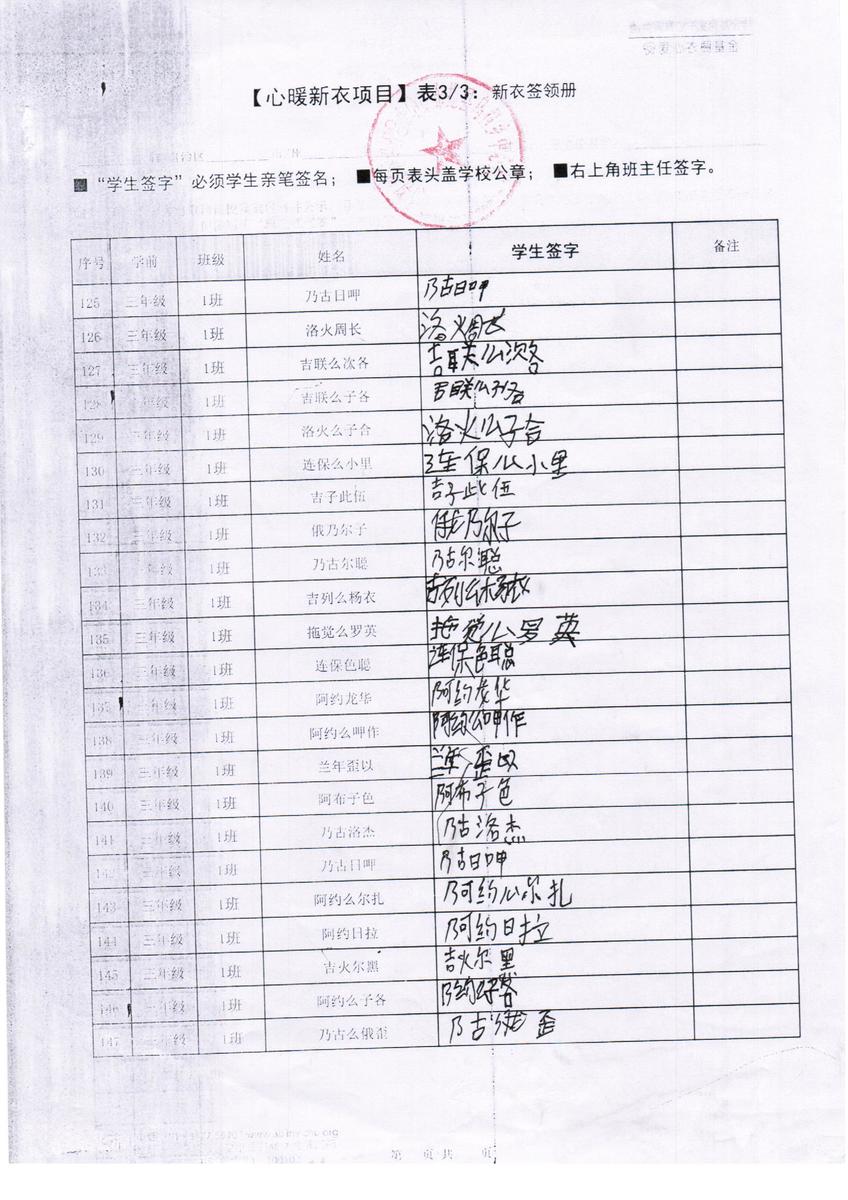 【心暖新衣项目】表3/3：新衣签领册
■“学生签字”必须学生亲笔签名； ■每页表头盖学校公章； ■右上角班主任签字。
序号 学前 班级 姓名 学生签字 备注
125 三年级 1班 乃古日呷 乃古日呷
126 三年级 1班 洛火周长 洛火周长
127 三年级 1班 吉联么次各 吉联么次各
128 三年级 1班 吉联么子各 吉联么子各
129 三年级 1班 洛火么子合 洛火么子合
130 三年级 1班 连保么小里 连保么小里
131 三年级 1班 吉子此伍 吉子此伍
132 三年级 1班 俄乃尔子 俄乃尔子
133 三年级 1班 乃古尔聪 乃古尔聪
134 三年级 1班 吉列么杨衣 吉列么杨衣
135 三年级 1班 拖觉么罗英 拖觉么罗英
136 三年级 1班 连保色聪 连保色聪
137 三年级 1班 阿约龙华 阿约龙华
138 三年级 1班 阿约么呷作 阿约么呷作
139 三年级 1班 兰年歪以 兰年歪以
140 三年级 1班 阿布子色 阿布子色
141 三年级 1班 乃古洛杰 乃古洛杰
142 三年级 1班 乃古日呷 乃古日呷
143 三年级 1班 阿约么尔扎 阿约么尔扎
144 三年级 1班 阿约日拉 阿约日拉
145 三年级 1班 吉火尔黑 吉火尔黑
146 三年级 1班 阿约么子各 阿约子各
147 三年级 1班 乃古么俄歪 乃古俄歪
第 页 共 页